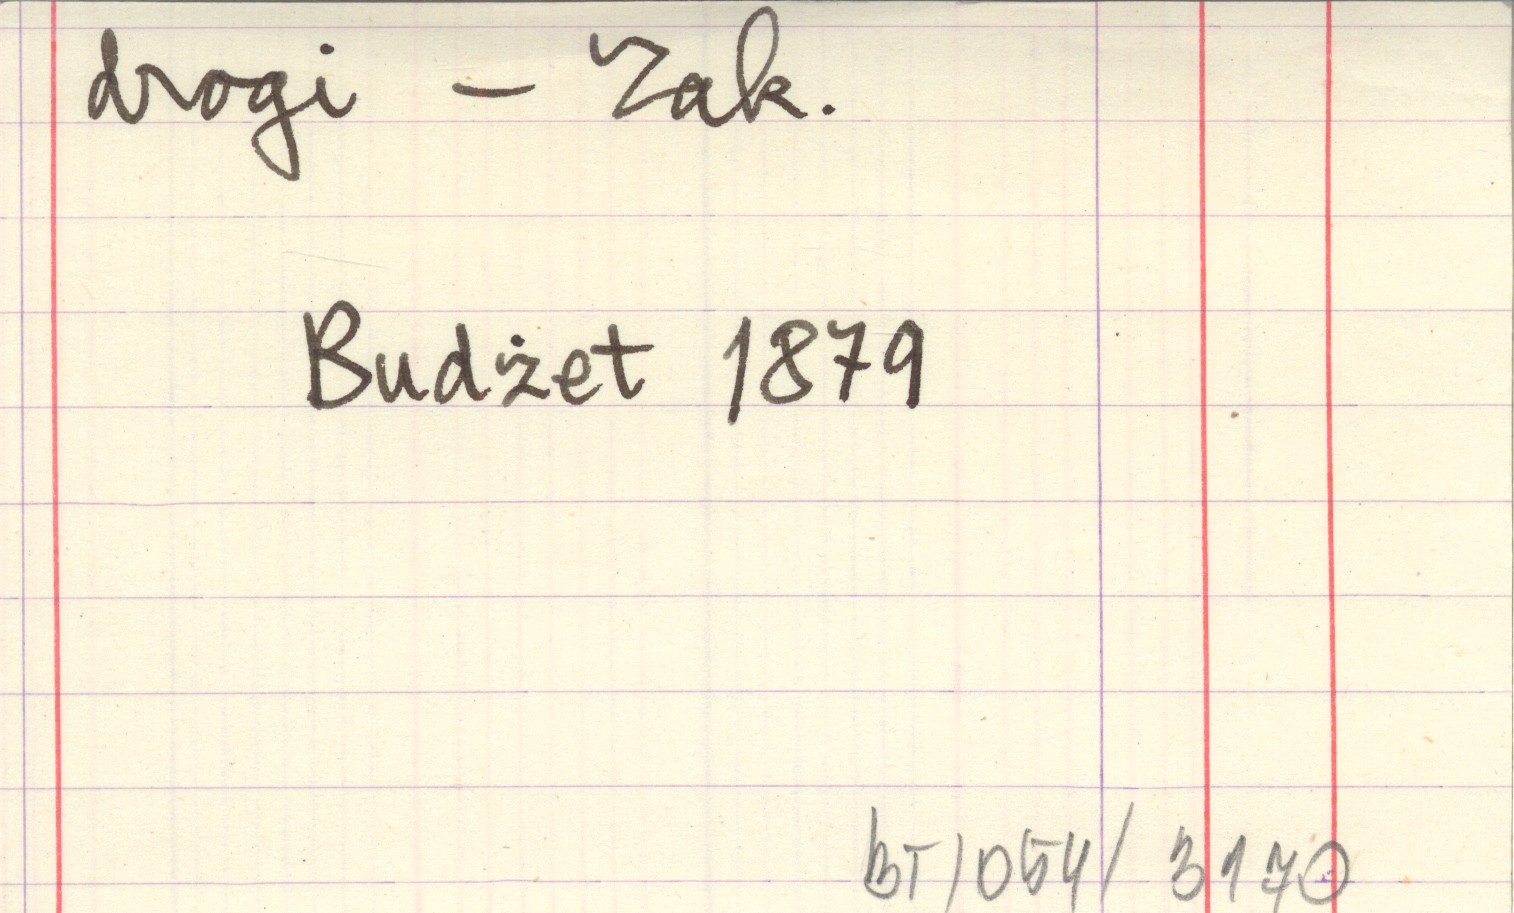 drogi - Zak.
Budżet 1879
BT/054/3170